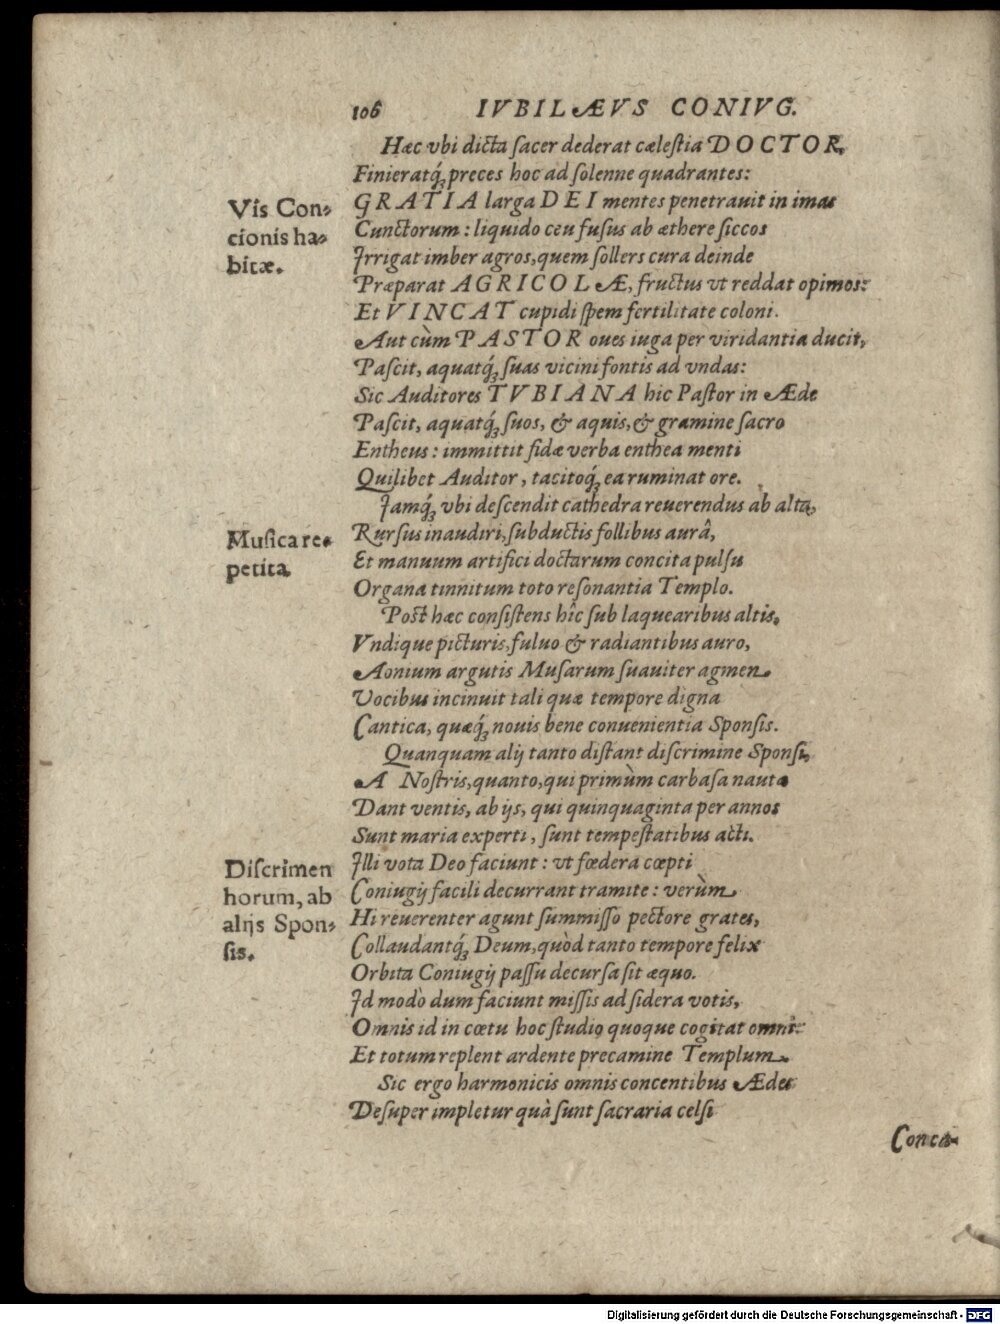 106 IVBILÆVS CONIVG.
Hæc vbi dicta ſacer dederat cæleſtia DOCTOR,
Finieratq́ꝫ preces hoc ad ſolenne quadrantes:
Vis Con-
GRATIA larga DEI mentes penetrauit in imas
cionis ha-
Cunctorum: liquido ceu fuſus ab æthere ſiccos
bitæ.
Irrigat imber agros, quem ſollers cura deinde
Præparat AGRICOLÆ, fructus vt reddat opimos:
Et VINCAT cupidi ſpem fertilitate coloni.
Aut cùm PASTOR oues iuga per viridantia ducit,
Paſcit, aquatq́ꝫ ſuas vicini fontis ad vndas:
Sic Auditores TVBIANA hic Paſtor in Æde
Paſcit, aquatq́ꝫ ſuos, & aquis, & gramine ſacro
Entheus: immittit fidæ verba enthea menti
Quilibet Auditor, tacitoq́ꝫ ea ruminat ore.
Jamq́ꝫ vbi deſcendit cathedra reuerendus ab alta,
Muſica re-
Rurſus inaudiri, ſubductis follibus aurâ,
petita
Et manuum artifici doctarum concita pulſu
Organa tinnitum toto reſonantia Templo.
Poſt hæc conſiſtens hîc ſub laquearibus altis,
Vndique picturis, fuluo & radiantibus auro,
Aonium argutis Muſarum ſuauiter agmen
Vocibus incinuit tali quæ tempore digna
Cantica, quæq́ꝫ nouis bene conuenientia Sponſis.
Quanquam alij tanto diſtant diſcrimine Sponſi,
A Noſtris, quanto, qui primùm carbaſa nautæ
Dant ventis, ab ijs, qui quinquaginta per annos
Sunt maria experti, ſunt tempeſtatibus acti.
Diſcrimen
Illi vota Deo faciunt: vt fœdera cœpti
horum, ab
Coniugij facili decurrant tramite: verùm
alijs Spon-
Hi reuerenter agunt ſummiſſo pectore grates,
ſis.
Collaudantq́ꝫ Deum, quòd tanto tempore felix
Orbita Coniugij paſſu decurſa ſit æquo.
Id modò dum faciunt miſſis ad ſidera votis,
Omnis id in cœtu hoc ſtudio quoque cogitat omni:
Et totum replent ardente precamine Templum.
Sic ergo harmonicis omnis concentibus Ædes
Deſuper impletur quà ſunt ſacraria celſi
Conca-
Digitalisierung gefördert durch die Deutsche Forschungsgemeinschaft - DFG